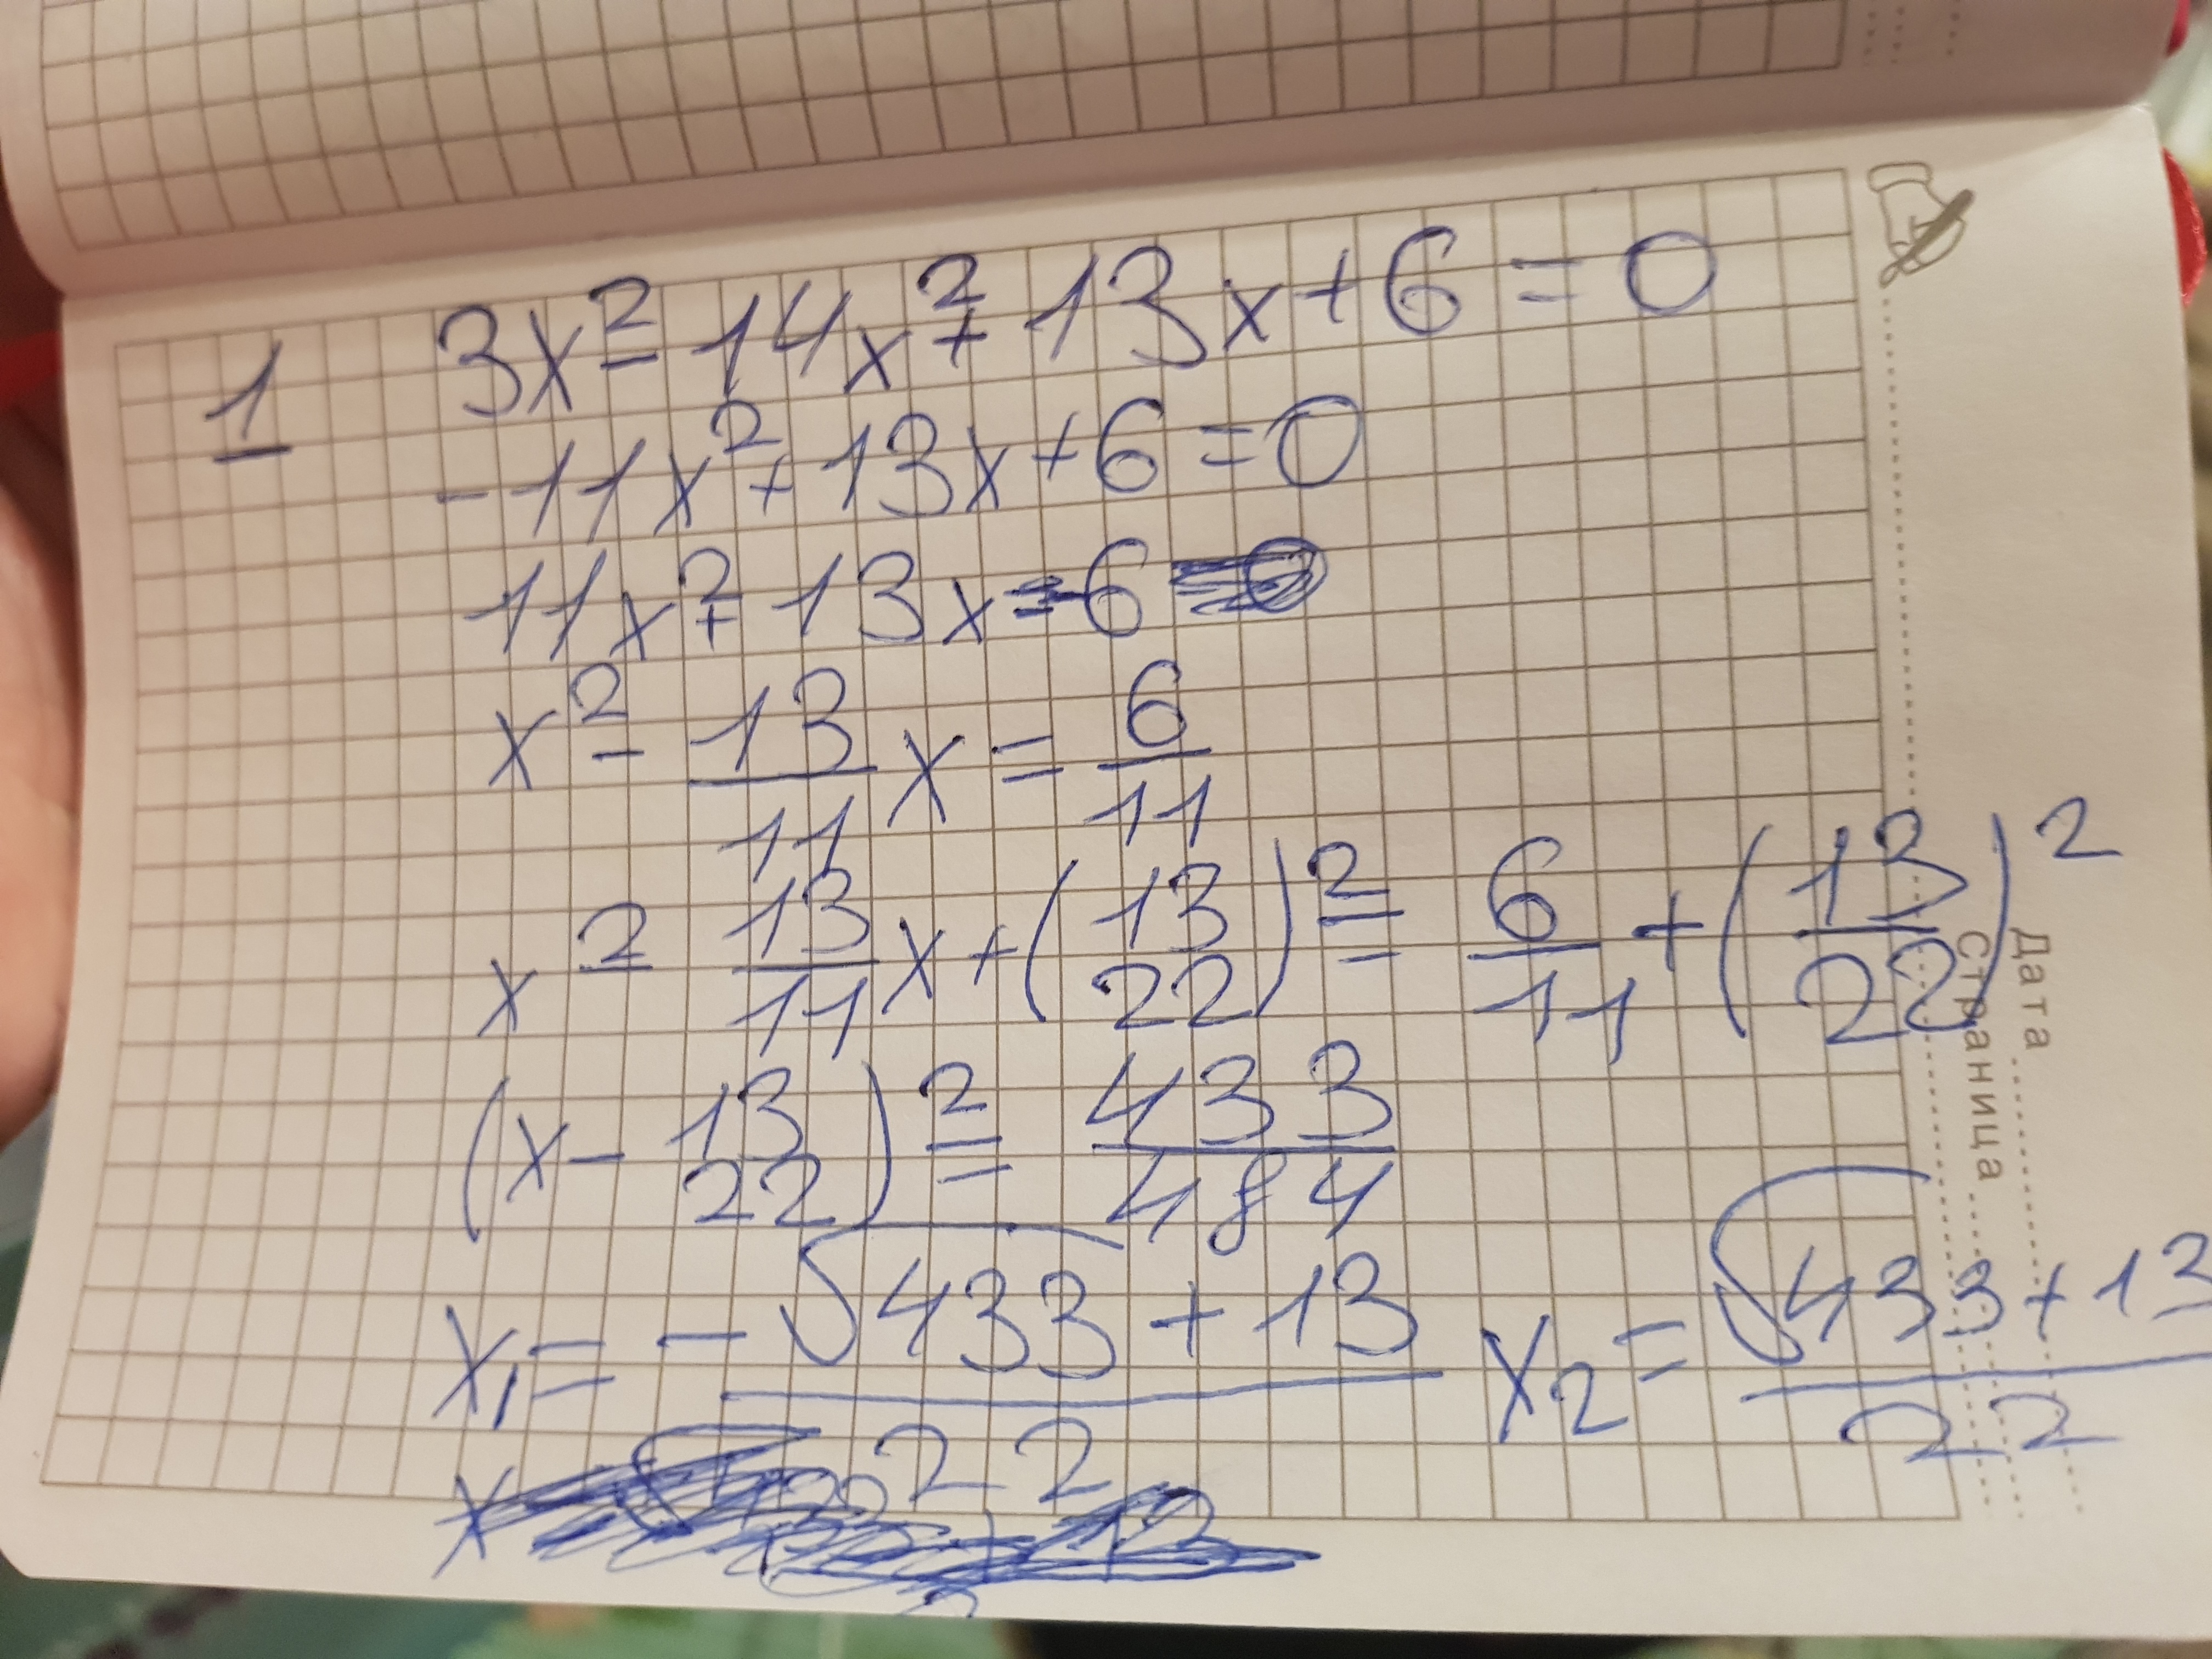 1 3x² - 14x² + 13x + 6 = 0
-11x² + 13x + 6 = 0
11x² + 13x - 6
x² - 13/11 x = 6/11
x² - 13/11 x + (13/22)² = 6/11 + (13/22)²
(x - 13/22)² = 433/484
x₁ = -√433 + 13 / 22 x₂ = √433 + 13 / 22
Дата
Страница